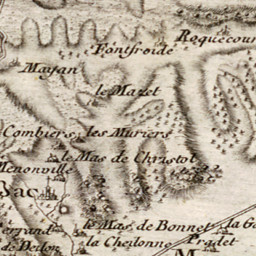 Roquecour
Fontfroide
Mayan
le Mazet
Combiers
les Muriers
le Mas de Christol
Menonville
sac
le Mas de Bonnet
la Ga
errand
la Cheilonne
Pradet
de Deilon
M